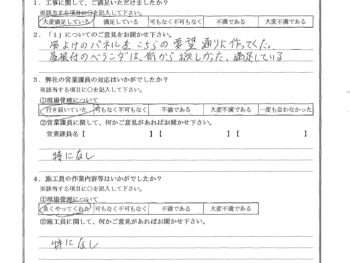 1．工事に関して、ご満足いただけましたか？
※該当する項目に○を記入して下さい。
大変満足している 満足している 可もなく不可もなく 不満である 大変不満である
2．「1」についてのご意見をお聞かせ下さい。
戻よけのパネルを こちらの要望通りに作ってくれた。
屋根付のベランダは 前から欲しかった、満足している
3．弊社の営業課員の対応はいかがでしたか？
※該当する項目に○を記入して下さい。
①現場管理について
行き届いていた 可もなく不可もなく 不満である 大変不満である 一度も会わなかった
②営業課員に関して、何かご意見があればお聞かせ下さい。
営業課員名【 】【 】【 】
特になし
4．施工員の作業内容等はいかがでしたか？
※該当する項目に○を記入して下さい。
①現場管理について
良くやってくれた 可もなく不可もなく 不満である 大変不満である
②施工員に関して、何かご意見があればお聞かせ下さい。
特になし